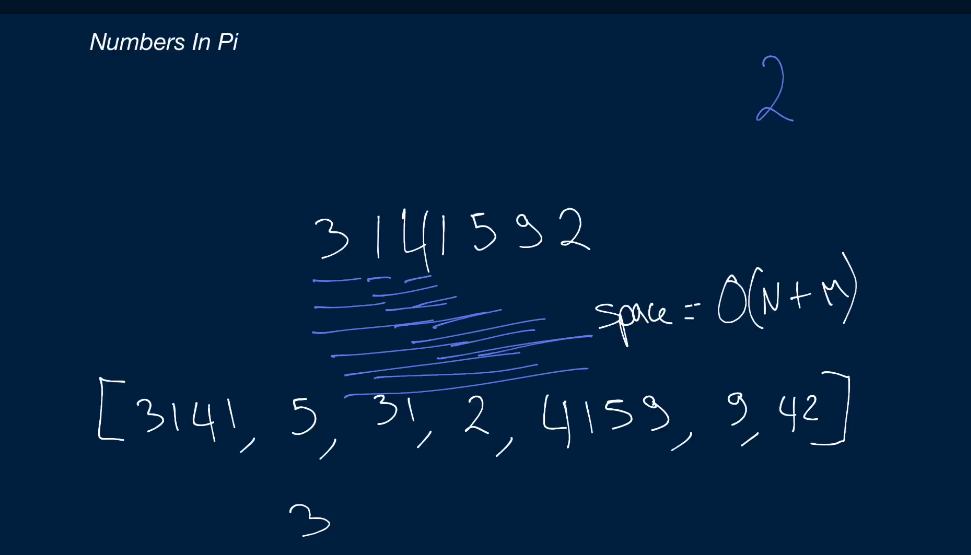 Numbers In Pi
2
3141592
space = O(N+M)
[3141, 5, 31, 2, 4159, 9, 42]
3